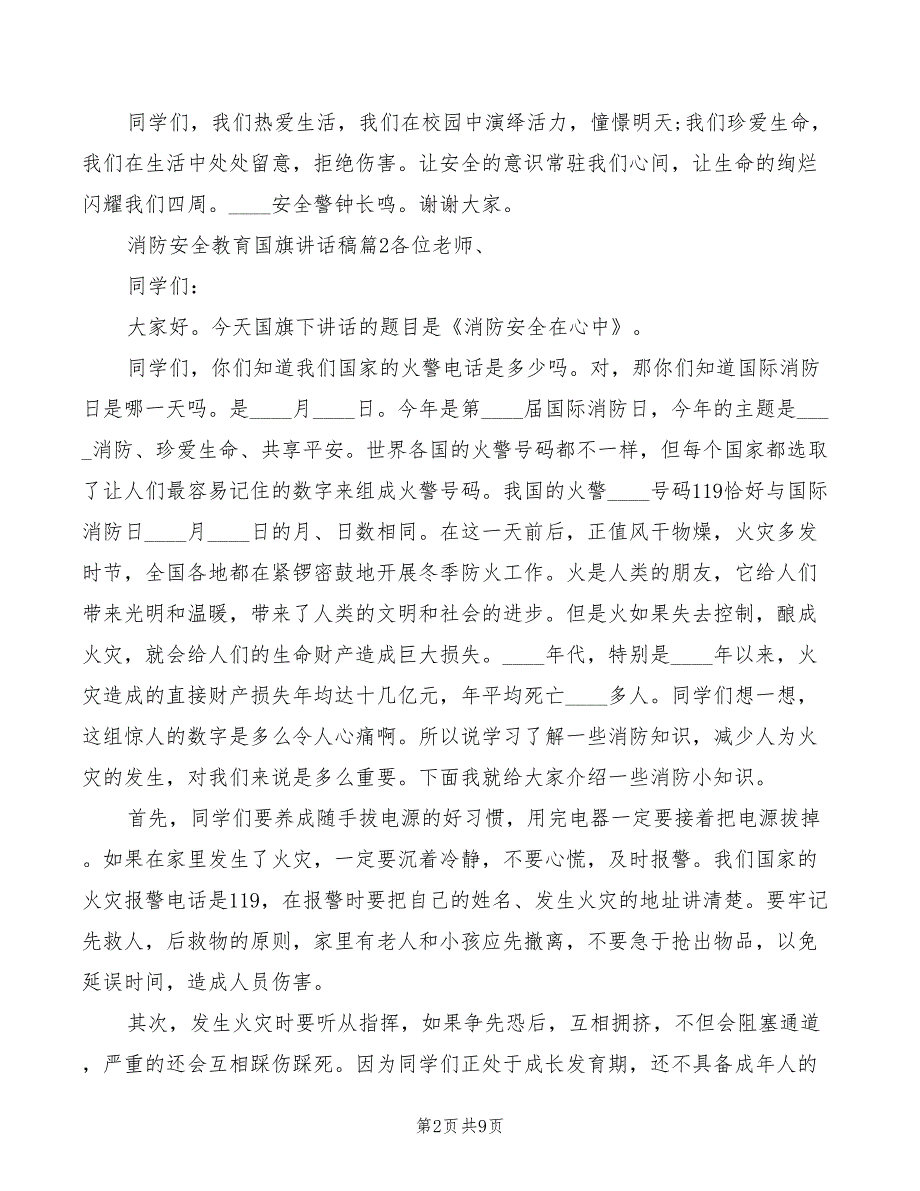 同学们，我们热爱生活，我们在校园中演绎活力，憧憬明天;我们珍爱生命，
我们在生活中处处留意，拒绝伤害。让安全的意识常驻我们心间，让生命的绚烂
闪耀我们四周。____安全警钟长鸣。谢谢大家。
消防安全教育国旗讲话稿篇2各位老师、
同学们：
大家好。今天国旗下讲话的题目是《消防安全在心中》。
同学们，你们知道我们国家的火警电话是多少吗。对，那你们知道国际消防
日是哪一天吗。是____月____日。今年是第____届国际消防日，今年的主题是___
_消防、珍爱生命、共享平安。世界各国的火警号码都不一样，但每个国家都选取
了让人们最容易记住的数字来组成火警号码。我国的火警____号码119恰好与国际
消防日____月____日的月、日数相同。在这一天前后，正值风干物燥，火灾多发
时节，全国各地都在紧锣密鼓地开展冬季防火工作。火是人类的朋友，它给人们
带来光明和温暖，带来了人类的文明和社会的进步。但是火如果失去控制，酿成
火灾，就会给人们的生命财产造成巨大损失。____年代，特别是____年以来，火
灾造成的直接财产损失年均达十几亿元，年平均死亡____多人。同学们想一想，
这组惊人的数字是多么令人心痛啊。所以说学习了解一些消防知识，减少人为火
灾的发生，对我们来说是多么重要。下面我就给大家介绍一些消防小知识。
首先，同学们要养成随手拔电源的好习惯，用完电器一定要接着把电源拔掉
。如果在家里发生了火灾，一定要沉着冷静，不要心慌，及时报警。我们国家的
火灾报警电话是119，在报警时要把自己的姓名、发生火灾的地址讲清楚。要牢记
先救人，后救物的原则，家里有老人和小孩应先撤离，不要急于抢出物品，以免
延误时间，造成人员伤害。
其次，发生火灾时要听从指挥，如果争先恐后，互相拥挤，不但会阻塞通道
，严重的还会互相踩伤踩死。因为同学们正处于成长发育期，还不具备成年人的
第2页 共9页